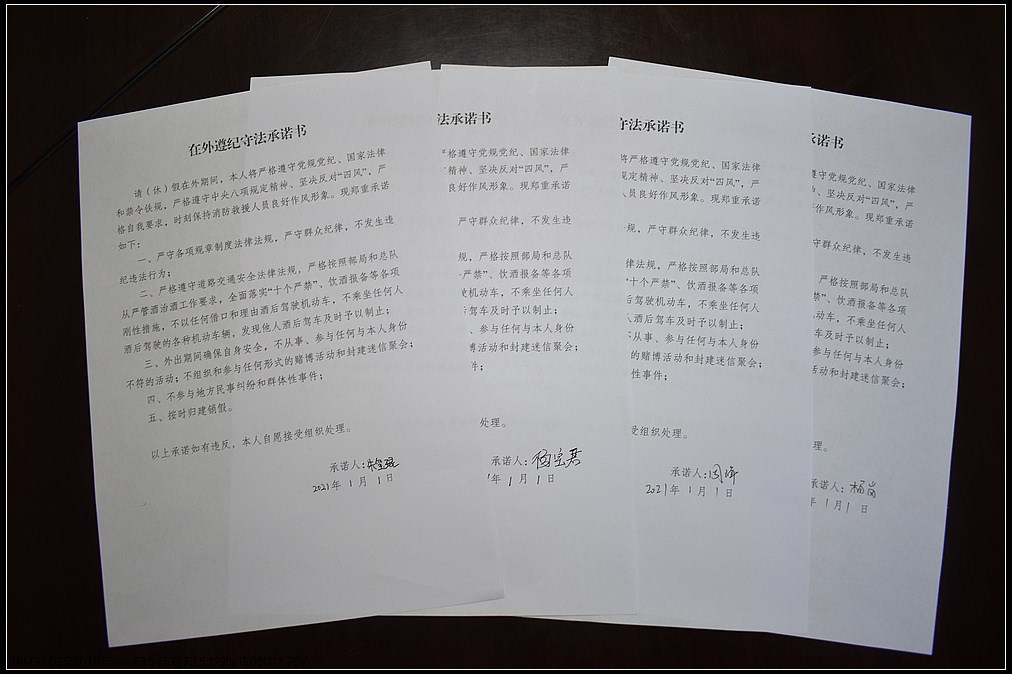 在外遵纪守法承诺书
请（休）假在外期间，本人将严格遵守党规党纪、国家法律
和禁令铁规，严格遵守中央八项规定精神、坚决反对“四风”，严
格自我要求，时刻保持消防救援人员良好作风形象。现郑重承诺
如下：
一、严守各项规章制度法律法规，严守群众纪律，不发生违
纪违法行为；
二、严格遵守道路交通安全法律法规，严格按照部局和总队
从严管酒治酒工作要求，全面落实“十个严禁”、饮酒报备等各项
刚性措施，不以任何借口和理由酒后驾驶机动车，不乘坐任何人
酒后驾驶的各种机动车辆，发现他人酒后驾车及时予以制止；
三、外出期间确保自身安全，不从事、参与任何与本人身份
不符的活动；不组织和参与任何形式的赌博活动和封建迷信聚会；
四、不参与地方民事纠纷和群体性事件；
五、按时归建销假。
以上承诺如有违反，本人自愿接受组织处理。
承诺人：
2021年 1 月 1 日
法承诺书
格遵守党规党纪、国家法律
精神、坚决反对“四风”，严
良好作风形象。现郑重承诺
严守群众纪律，不发生违
规，严格按照部局和总队
严禁”、饮酒报备等各项
机动车，不乘坐任何人
驾车及时予以制止；
、参与任何与本人身份
活动和封建迷信聚会；
件；
处理。
承诺人：杨宗君
年 1 月 1 日
守法承诺书
格遵守党规党纪、国家法律
规定精神、坚决反对“四风”，严
人员良好作风形象。现郑重承诺
规，严守群众纪律，不发生违
律法规，严格按照部局和总队
“十个严禁”、饮酒报备等各项
后驾驶机动车，不乘坐任何人
酒后驾车及时予以制止；
从事、参与任何与本人身份
的赌博活动和封建迷信聚会；
性事件；
受组织处理。
承诺人：
2021年 1 月 1 日
承诺书
遵守党规党纪、国家法律
、坚决反对“四风”，严
作风形象。现郑重承诺
守群众纪律，不发生违
严格按照部局和总队
禁”、饮酒报备等各项
动车，不乘坐任何人
车及时予以制止；
参与任何与本人身份
动和封建迷信聚会；
理。
承诺人：杨岗
年 1 月 1 日